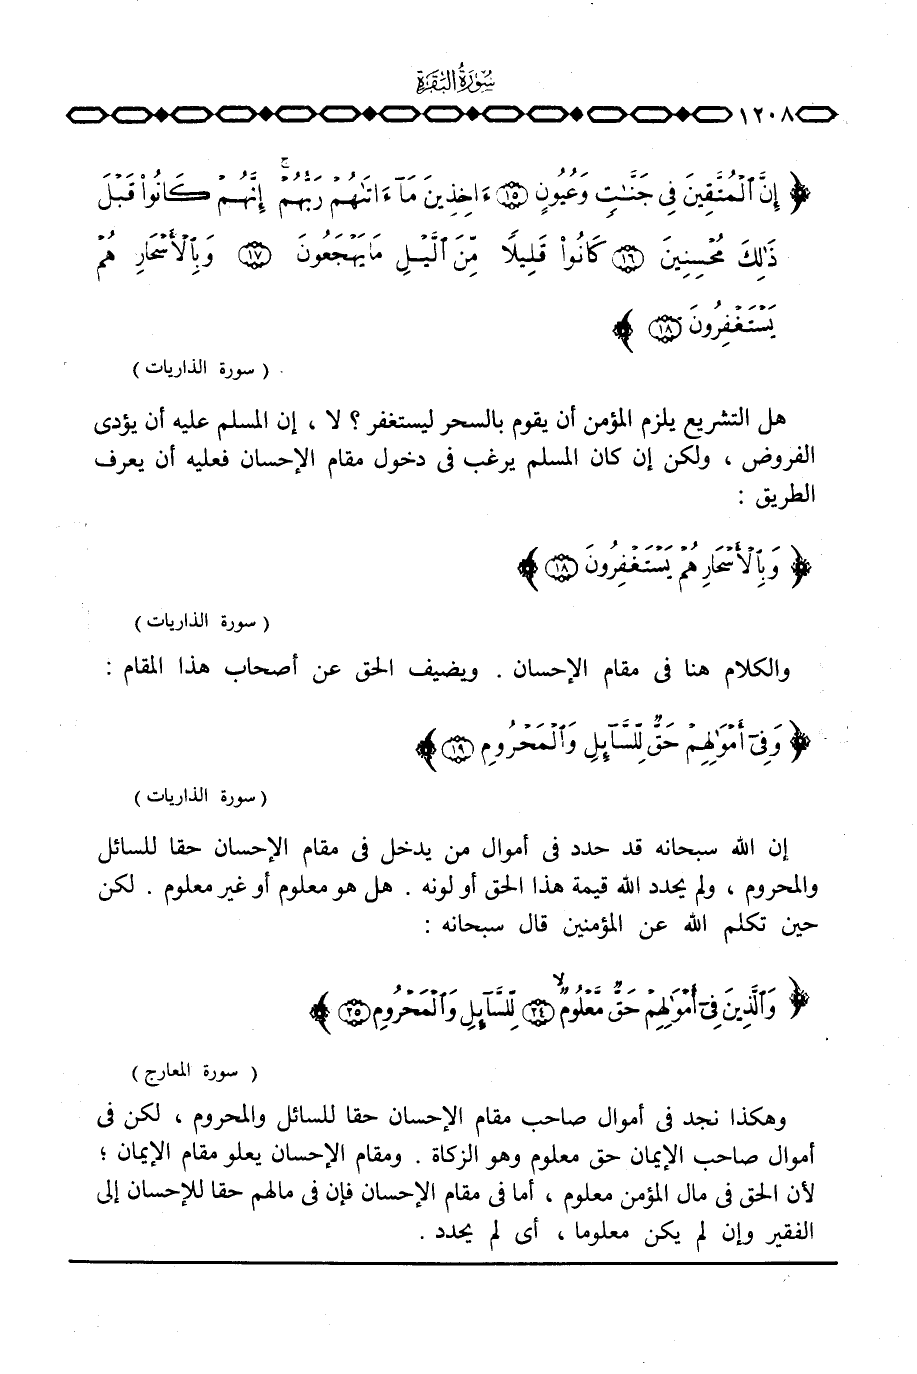 سُورَةُ البَقَرَة
١٢٠٨
﴿ إِنَّ ٱلْمُتَّقِينَ فِى جَنَّٰتٍ وَعُيُونٍ ١٥ ءَاخِذِينَ مَآ ءَاتَىٰهُمْ رَبُّهُمْ ۚ إِنَّهُمْ كَانُوا۟ قَبْلَ
ذَٰلِكَ مُحْسِنِينَ ١٦ كَانُوا۟ قَلِيلًا مِّنَ ٱلَّيْلِ مَا يَهْجَعُونَ ١٧ وَبِٱلْأَسْحَارِ هُمْ
يَسْتَغْفِرُونَ ١٨ ﴾
( سورة الذاريات )
هل التشريع يلزم المؤمن أن يقوم بالسحر ليستغفر ؟ لا ، إن المسلم عليه أن يؤدى
الفروض ، ولكن إن كان المسلم يرغب فى دخول مقام الإحسان فعليه أن يعرف
الطريق :
﴿ وَبِٱلْأَسْحَارِ هُمْ يَسْتَغْفِرُونَ ١٨ ﴾
( سورة الذاريات )
والكلام هنا فى مقام الإحسان . ويضيف الحق عن أصحاب هذا المقام :
﴿ وَفِىٓ أَمْوَٰلِهِمْ حَقٌّ لِّلسَّآئِلِ وَٱلْمَحْرُومِ ١٩ ﴾
( سورة الذاريات )
إن الله سبحانه قد حدد فى أموال من يدخل فى مقام الإحسان حقا للسائل
والمحروم ، ولم يحدد الله قيمة هذا الحق أو لونه . هل هو معلوم أو غير معلوم . لكن
حين تكلم الله عن المؤمنين قال سبحانه :
﴿ وَٱلَّذِينَ فِىٓ أَمْوَٰلِهِمْ حَقٌّ مَّعْلُومٌ ۙ ٢٤ لِّلسَّآئِلِ وَٱلْمَحْرُومِ ٢٥ ﴾
( سورة المعارج )
وهكذا نجد فى أموال صاحب مقام الإحسان حقا للسائل والمحروم ، لكن فى
أموال صاحب الإيمان حق معلوم وهو الزكاة . ومقام الإحسان يعلو مقام الإيمان ؛
لأن الحق فى مال المؤمن معلوم ، أما فى مقام الإحسان فإن فى مالهم حقا للإحسان إلى
الفقير وإن لم يكن معلوما ، أى لم يحدد .